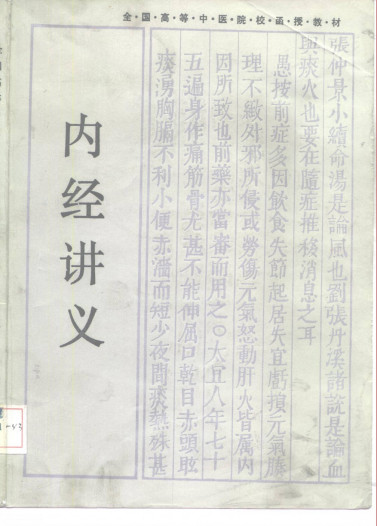 全·国·高·等·中·医·院·校·函·授·教·材
張仲景小續命湯是論風也劉張丹溪諸說是論血
與痰火也要在隨症推移消息之耳
愚按前症多因飲食失節起居失宜虧損元氣腠
理不緻外邪所侵或勞傷元氣怒動肝火皆属内
因所致也前藥亦當審而用之〇大宜人年七十
五遍身作痛筋骨尤甚不能伸屈口乾目赤頭眩
痰湧胸膈不利小便赤濇而短少夜間痰熱殊甚
内经讲义